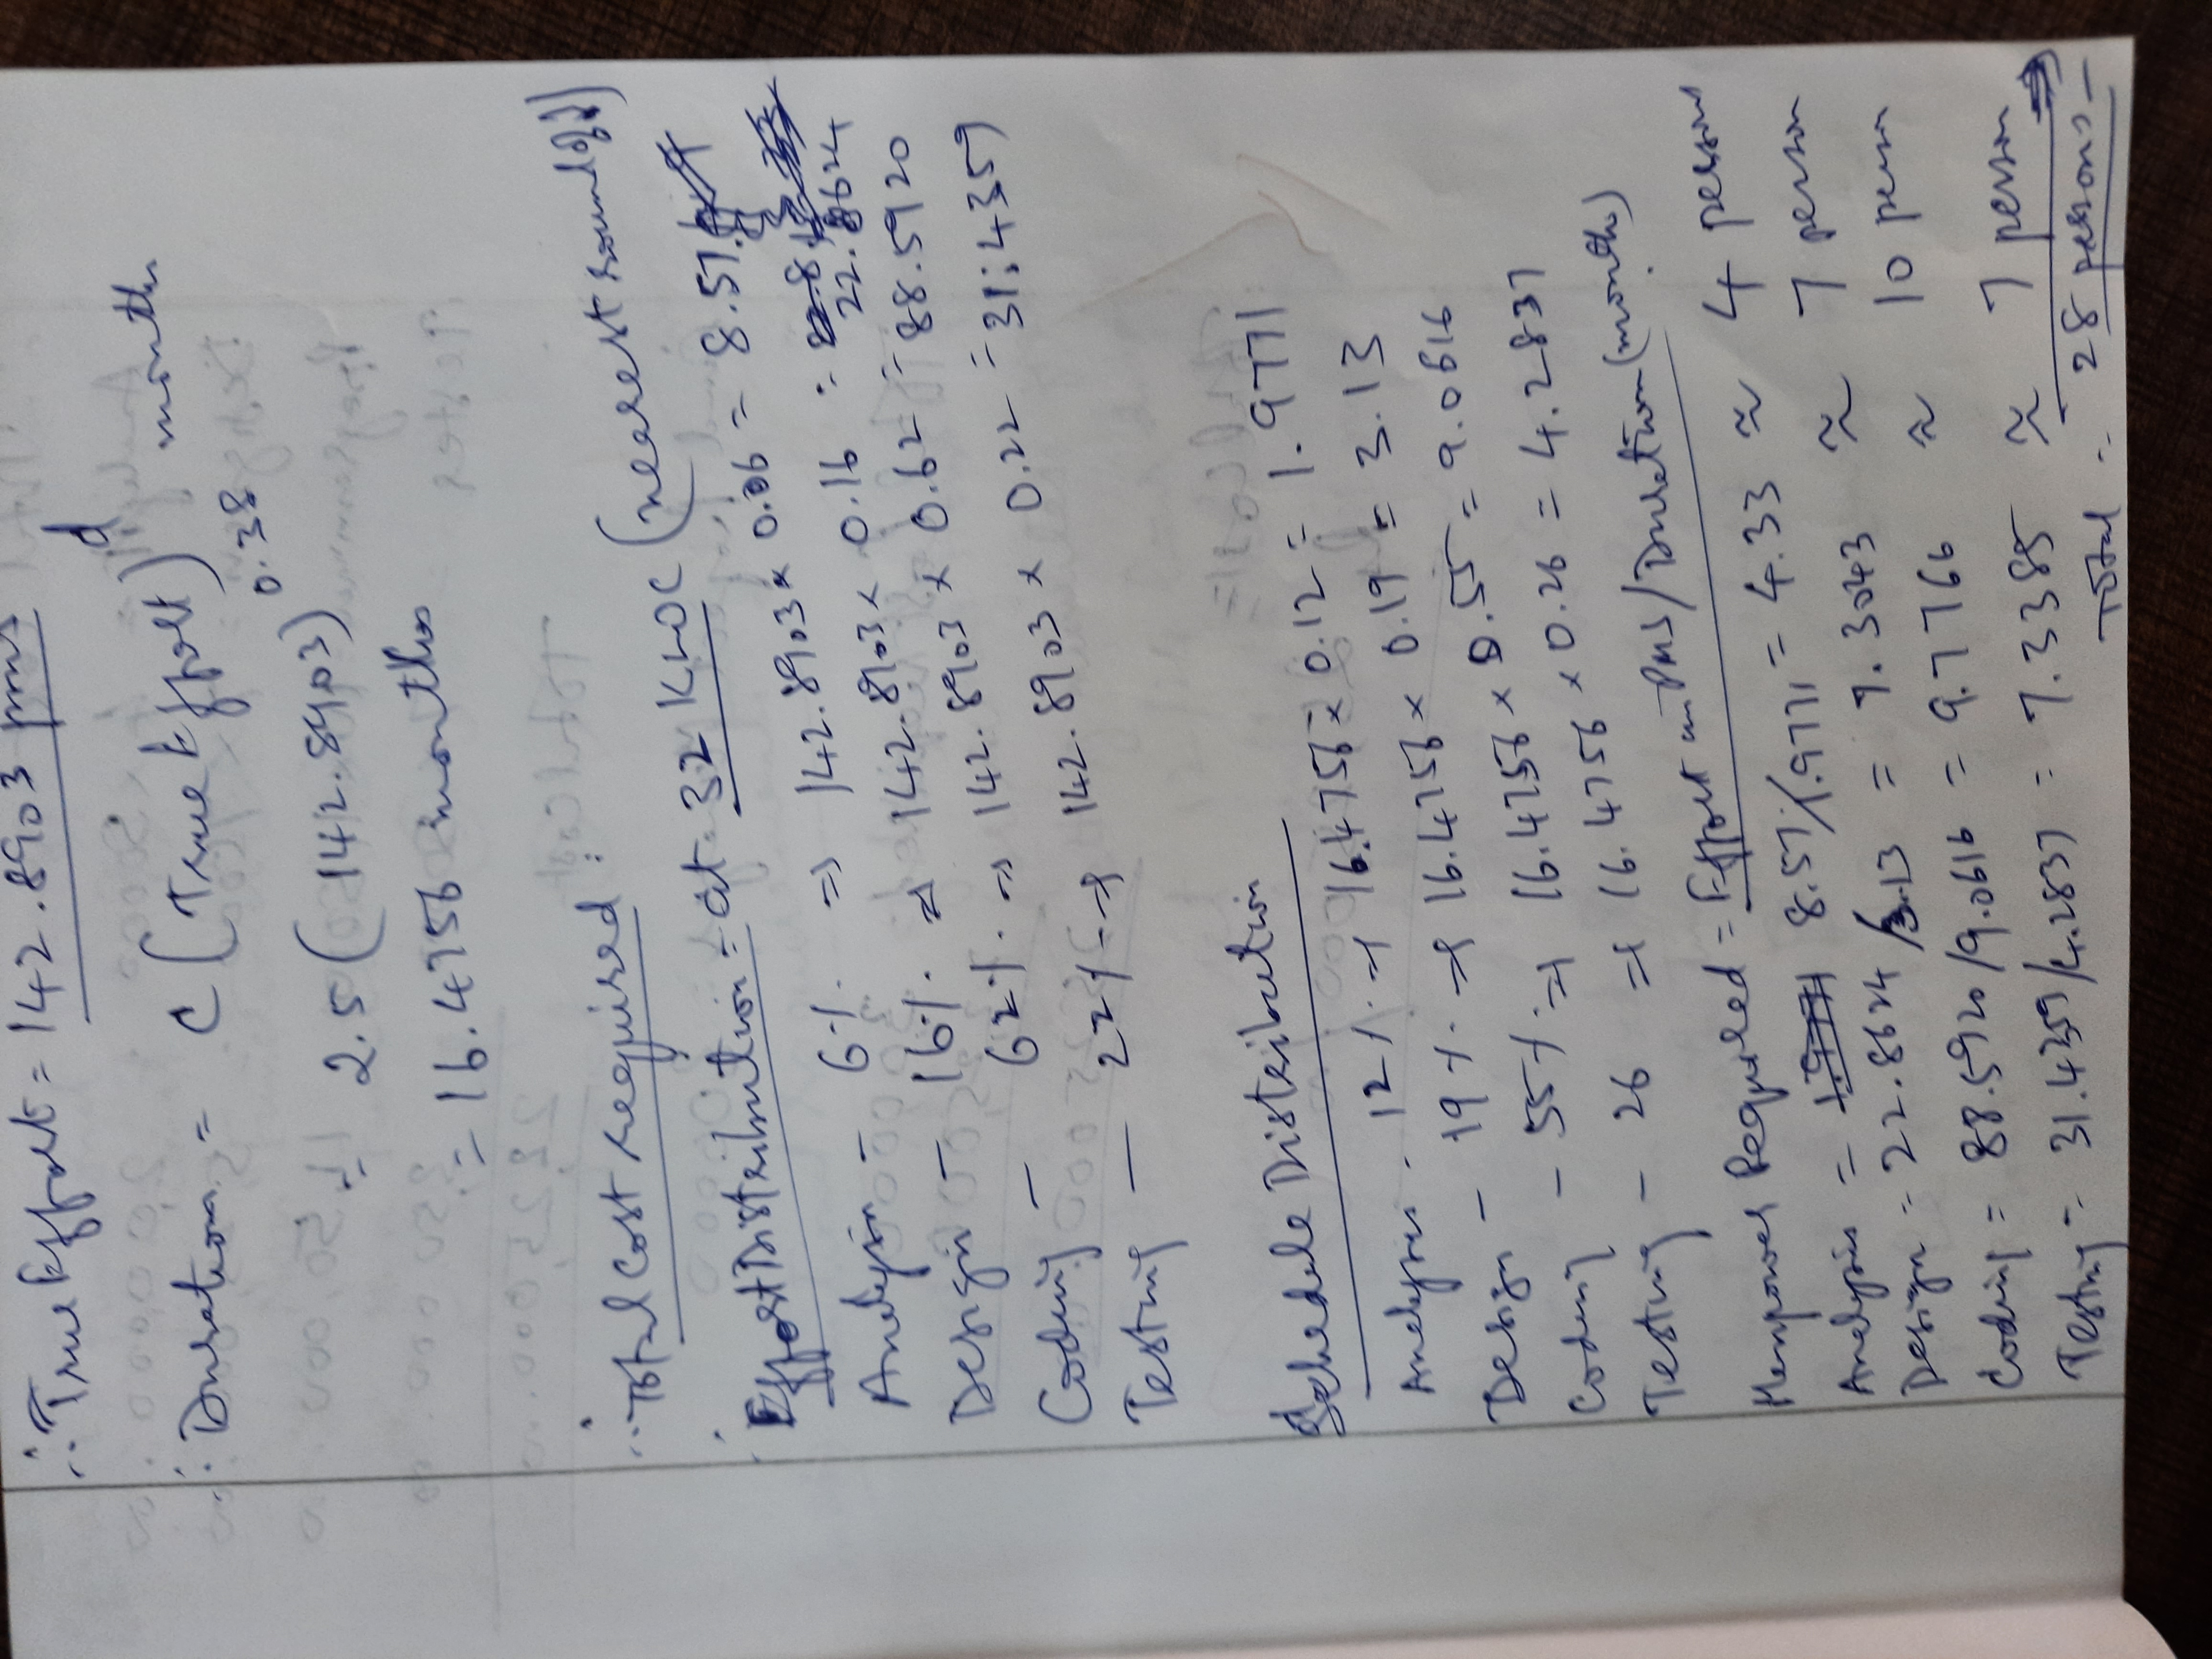 ∴ True Effort = 142.8903 pms
∴ Duration = C (True Effort)^d months
= 2.5 (142.8903)^0.38
= 16.4756 months
∴ Total Cost required :
Effort Distribution - at 32 KLOC (nearest round off)
Analysis - 6% ⇒ 142.8903 × 0.06 = 8.57
Design - 16% ⇒ 142.8903 × 0.16 = 22.8624
Coding - 62% ⇒ 142.8903 × 0.62 = 88.5920
Testing - 22% ⇒ 142.8903 × 0.22 = 31.4359
Schedule Distribution
Analysis - 12% ⇒ 16.4756 × 0.12 = 1.9771
Design - 19% ⇒ 16.4756 × 0.19 = 3.13
Coding - 55% ⇒ 16.4756 × 0.55 = 9.0616
Testing - 26 ⇒ 16.4756 × 0.26 = 4.2837
Manpower Required = Effort in PMS / Duration (months)
Analysis = 8.57/1.9771 = 4.33 ≈ 4 persons
Design = 22.8624/3.13 = 7.3043 ≈ 7 person
Coding = 88.5920/9.0616 = 9.7766 ≈ 10 person
Testing = 31.4359/4.2837 = 7.3385 ≈ 7 person
Total = 28 persons